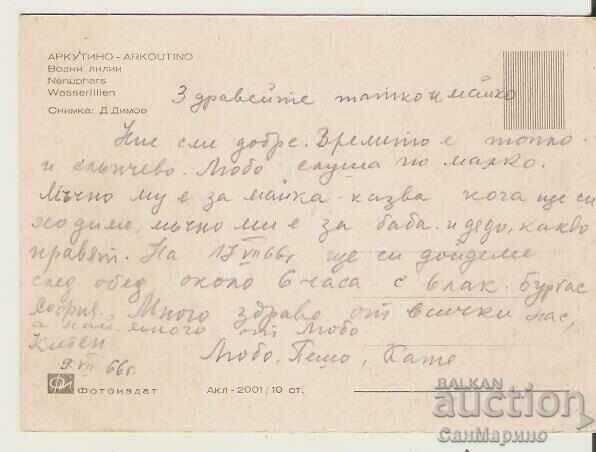 АРКУТИНО – ARKOUTINO
Водни лилии
Nenuphars
Wasserlilien
Снимка: Д. Димов
Здравейте татко и майко
Ние сме добре. Времето е топло
и слънчево. Любо слуша по малко.
Мъчно му е за майка. казва кога ще си
ходиме, мъчно ми е за баба и дядо, какво
правят. На 17 VII 66г ще си дойдеме
след обед около 6 часа с влак. Бургас
София. Много здраве от всички нас,
а най много от Любо
Китен
9. VII 66г.
Любо, Пешо, Кате
Фотоиздат
Акл - 2001 / 10 ст.
BALKAN
auction
СанМарино